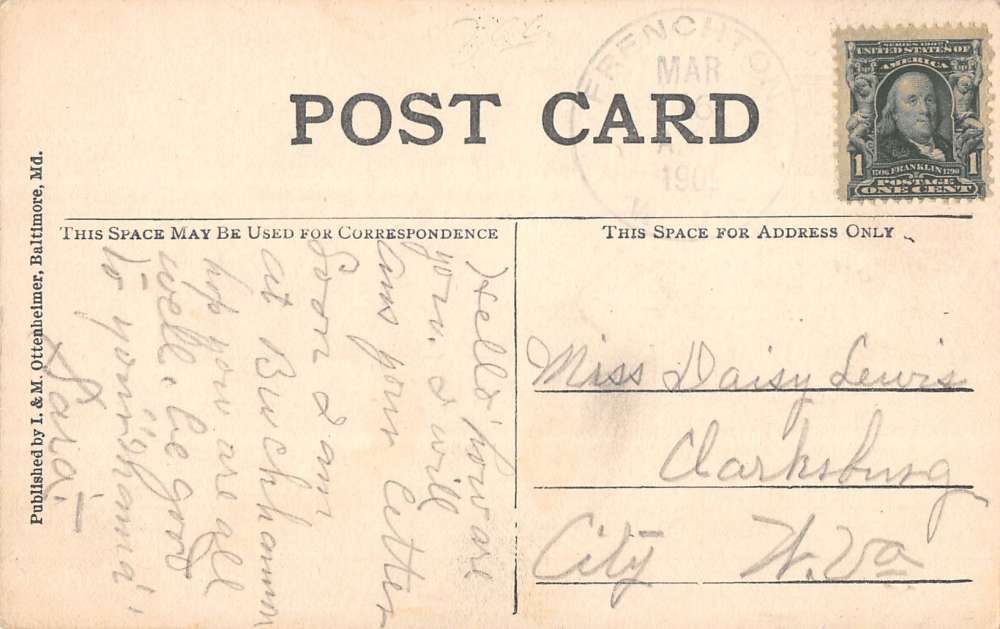 FRENCHTON
MAR
A.
190
W.
POST CARD
SERIES 1902
UNITED STATES OF
AMERICA
1706 FRANKLIN 1790
1 POSTAGE 1
ONE CENT
THIS SPACE MAY BE USED FOR CORRESPONDENCE
THIS SPACE FOR ADDRESS ONLY
Published by I. & M. Ottenheimer, Baltimore, Md.
Hello how are
you. I will
ans your letter
Soon I am
at Buckhannon
hop you are all
well. be good
to your
Miss Daisy Lewis
Clarksburg
City W. Va